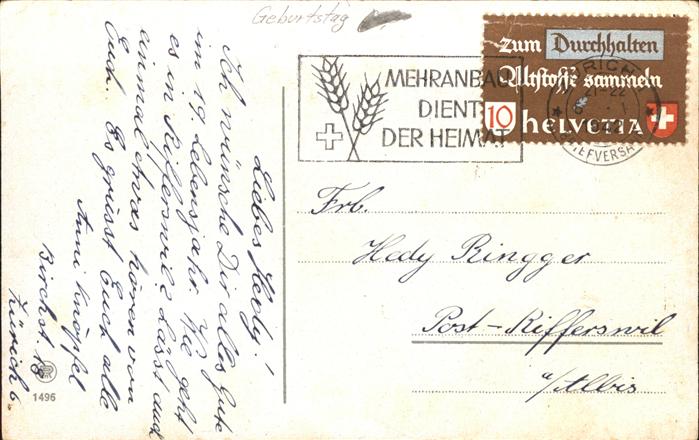 Geburtstag
zum Durchhalten
Altstoffe sammeln
10 HELVETIA
MEHRANBAU
DIENT
DER HEIMAT
21-22
1942
BRIEFVERSAND
Liebes Hedy!
Ich wünsche Dir alles Gute
im 19. Lebensjahr. Wie geht
es in Rifferswil? Lasst auch
einmal etwas hören von
Euch. Es grüsst Euch alle
Anni Knöpfel
Birchst. 18
Zürich 6.
Frb.
Hedy Ringger
Post-Rifferswil
a/Albis
1496